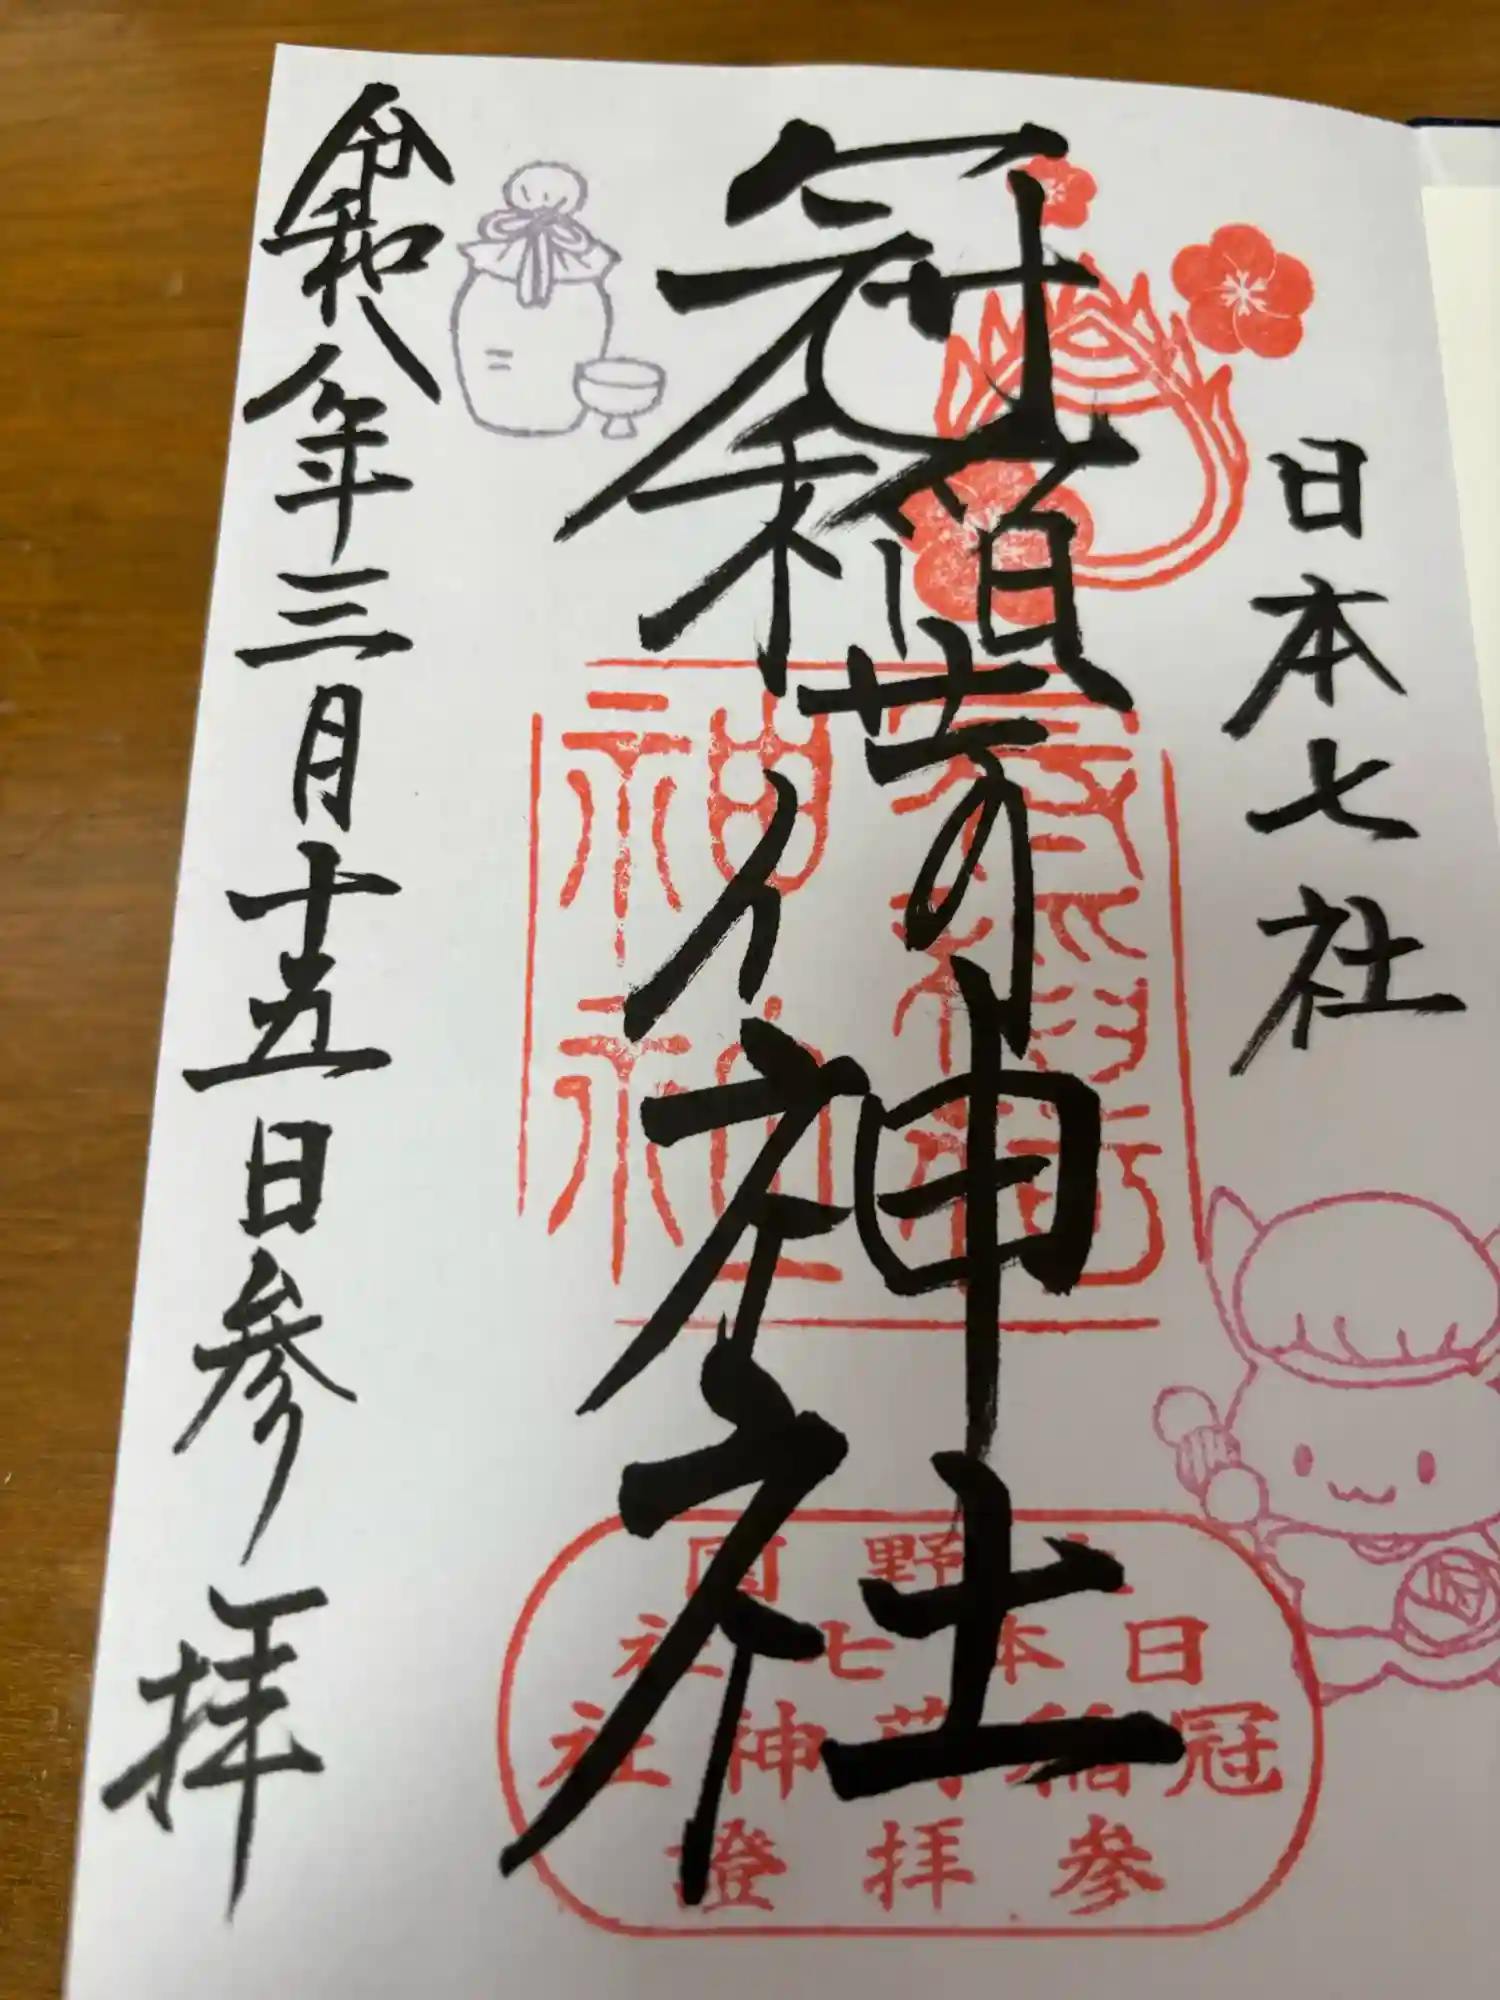 日本七社
冠稲荷神社
令和八年三月十五日参拝
冠稲荷神社
野國
日本七社
冠稲荷神社
参拝證